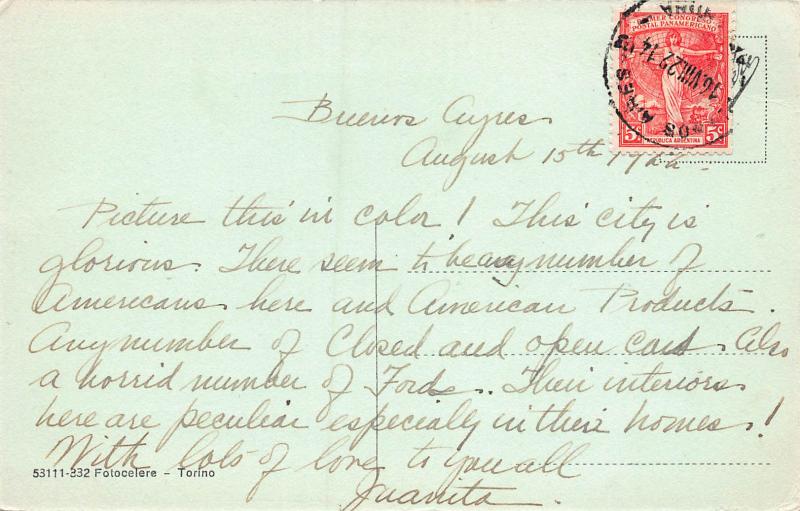 PRIMER CONGRESO
POSTAL PANAMERICANO
16.VIII.22.14
5c 5c
REPUBLICA ARGENTINA
Buenos Ayres
August 15th 1922
Picture this in color! This city is
glorious. There seem to be any number of
Americans here and American Products.
Any number of Closed and open cars. Also
a horrid number of Fords. Their interiors
here are peculiar especially in their homes!
With lots of love to you all
Juanita.
53111-232 Fotocelere - Torino